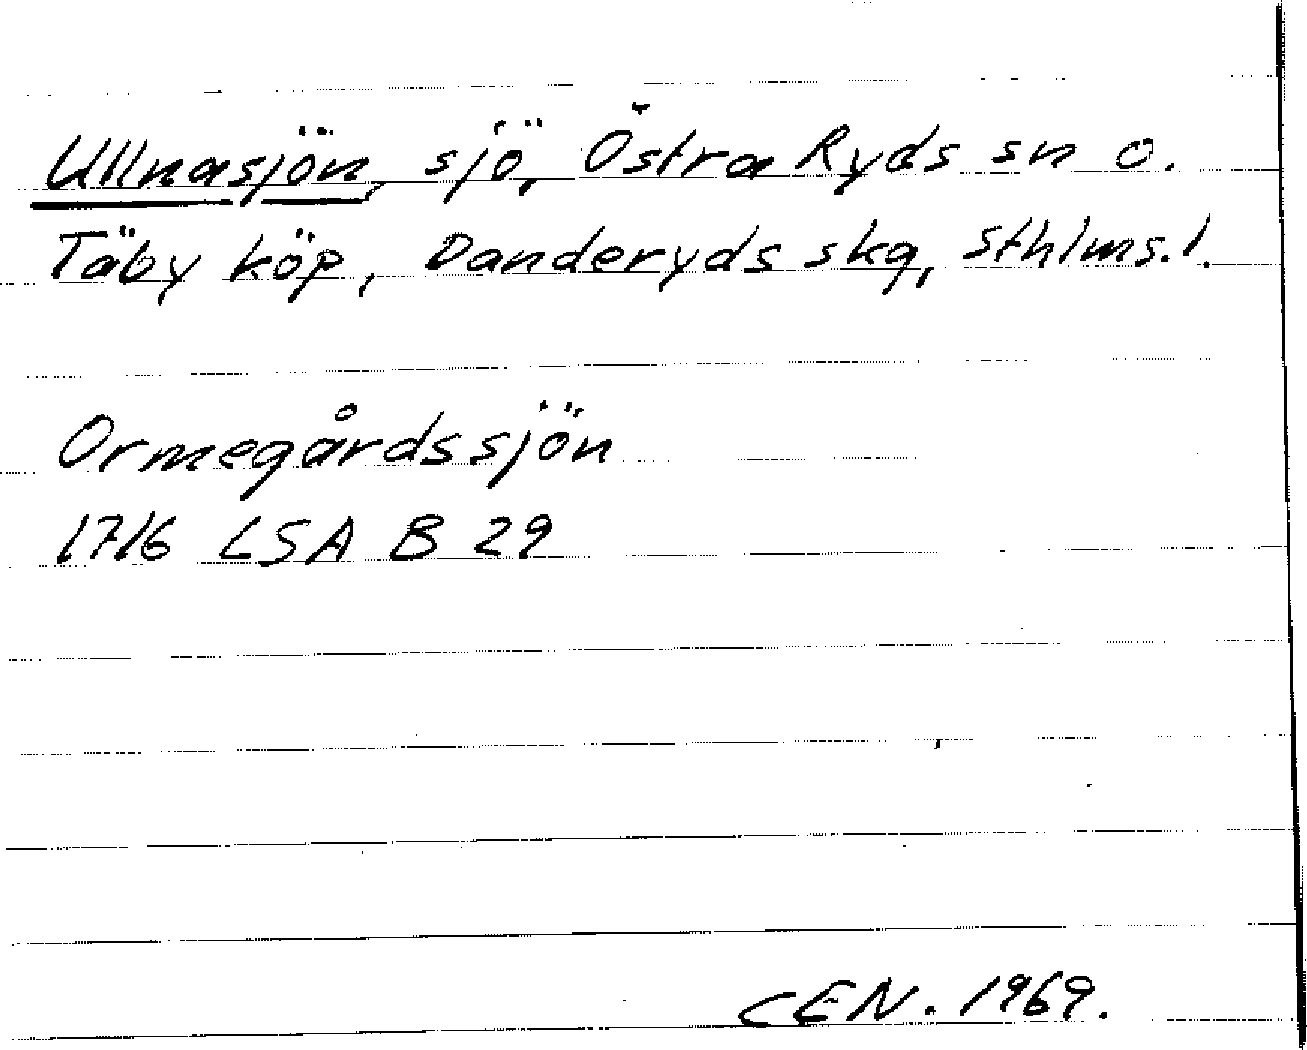 Ullnasjön, sjö, Östra Ryds sn o.
Täby köp, Danderyds skg, Sthlms.l.
Ormegårdssjön
1716 LSA B 29
CEN. 1969.